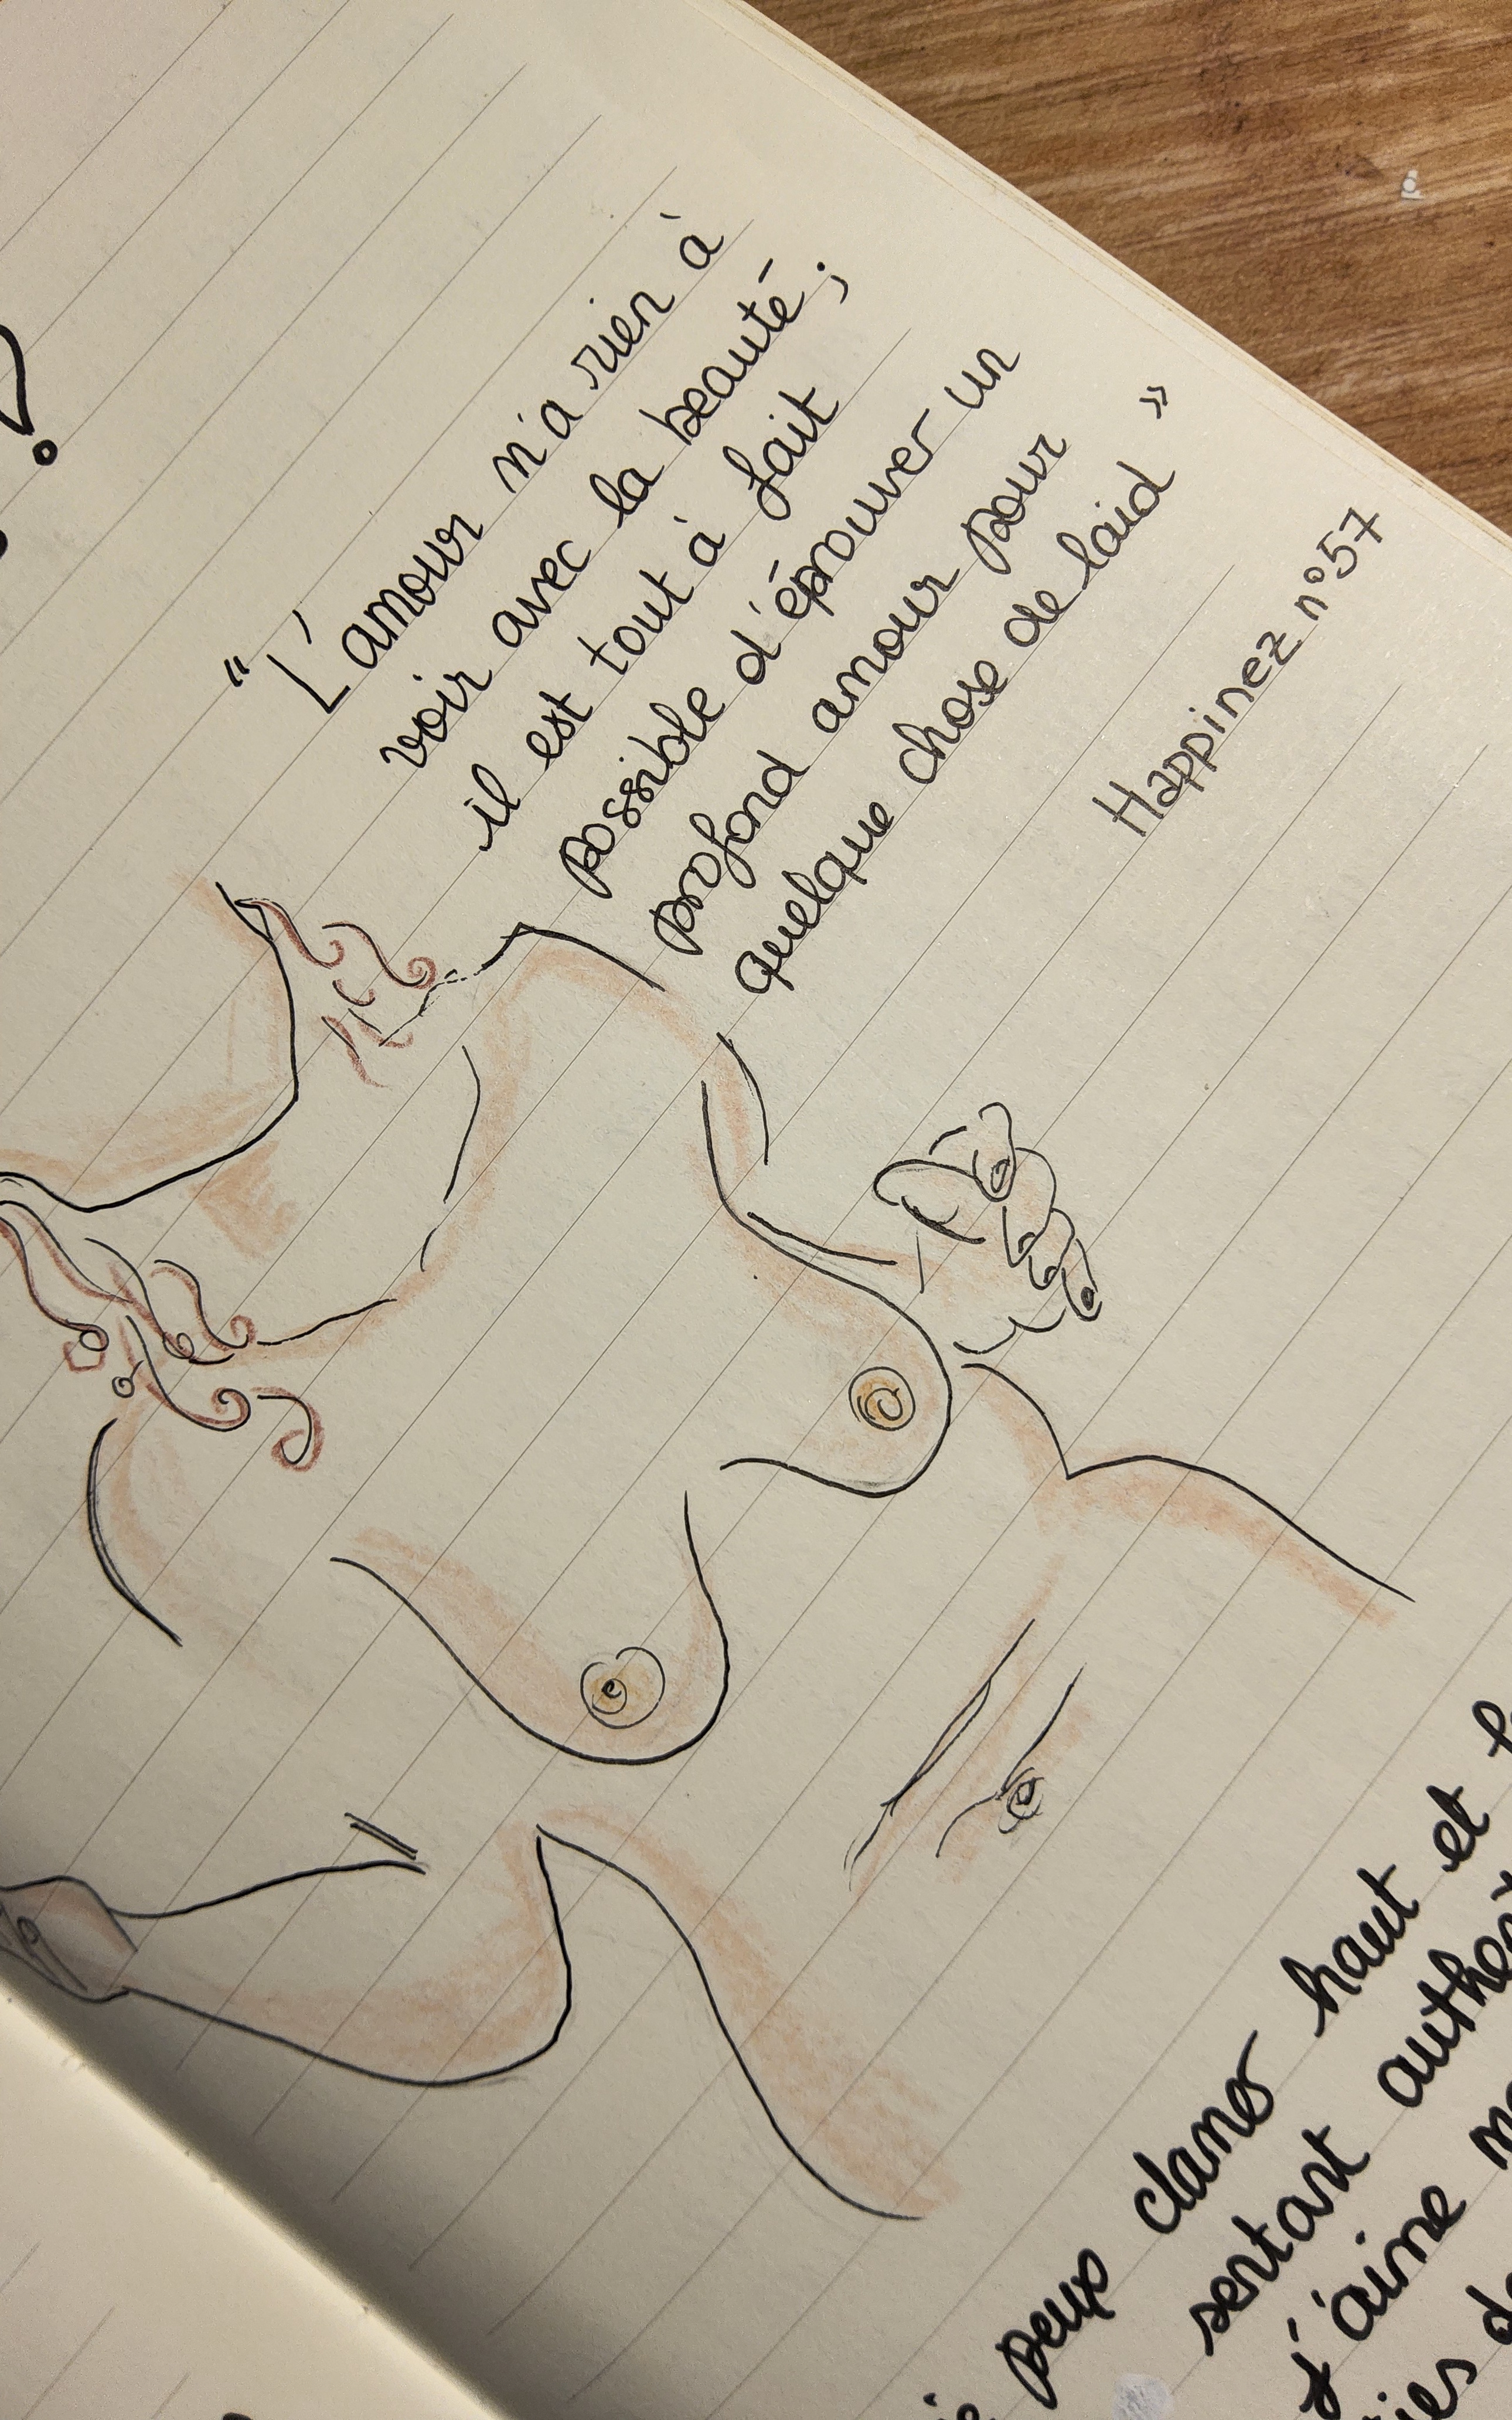 “ L'amour n'a rien à
voir avec la beauté ;
il est tout à fait
possible d'éprouver un
profond amour pour
quelque chose de laid ”
Happinez n°57
peux clamer haut et
sentant
j'aime